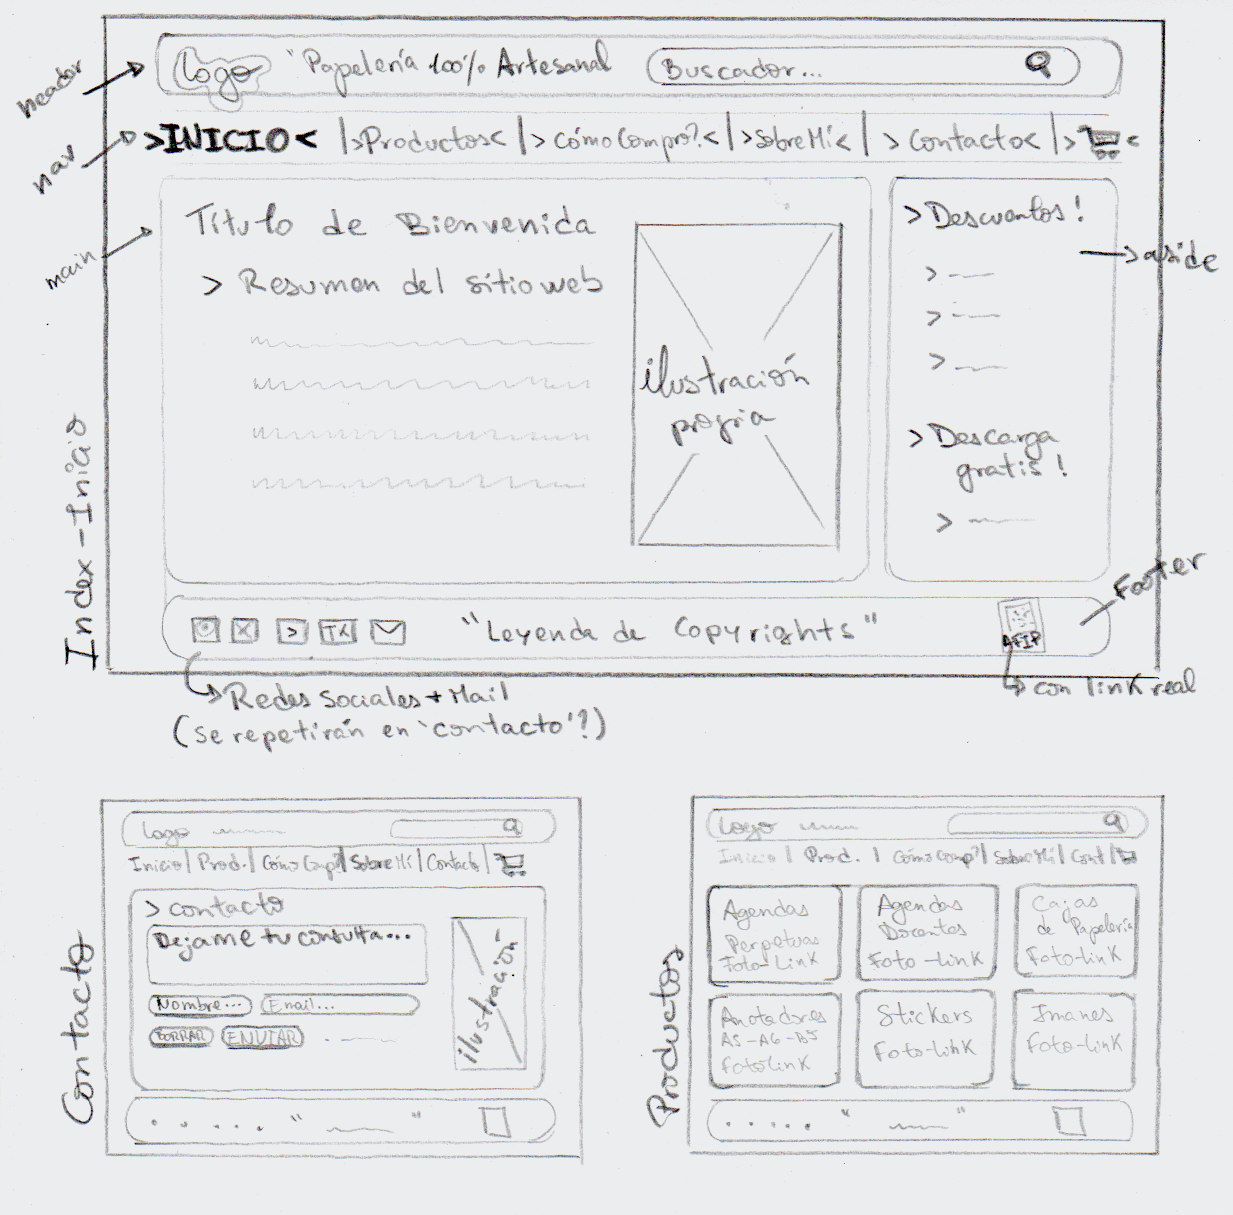 header
Logo "Papelería 100% Artesanal Buscador...
nav
>INICIO< |>Productos< |> CómoCompro?< |>SobreMí< | > Contacto< |> <
main
Título de Bienvenida
> Resumen del sitio web
ilustración
propia
> Descuentos!
aside
>
>
>
> Descarga
gratis!
>
Index-Inicio
Footer
"Leyenda de Copyrights"
AFIP
Redes Sociales + Mail
(se repetirán en 'contacto'?)
con link real
Contacto
Logo
Inicio | Prod. | Cómo Comp? | SobreMí | Contacto |
> contacto
Dejame tu consulta...
Nombre... Email...
BORRAR ENVIAR
ilustración
" "
Productos
Logo
Inicio | Prod. | CómoComp? | SobreMí | Cont |
Agendas
Perpetuas
Foto-Link
Agendas
Docentes
Foto-link
Cajas
de Papelería
Foto-link
Anotadores
A5-A6-B5
FotoLink
Stickers
Foto-link
Imanes
Foto-link
" "